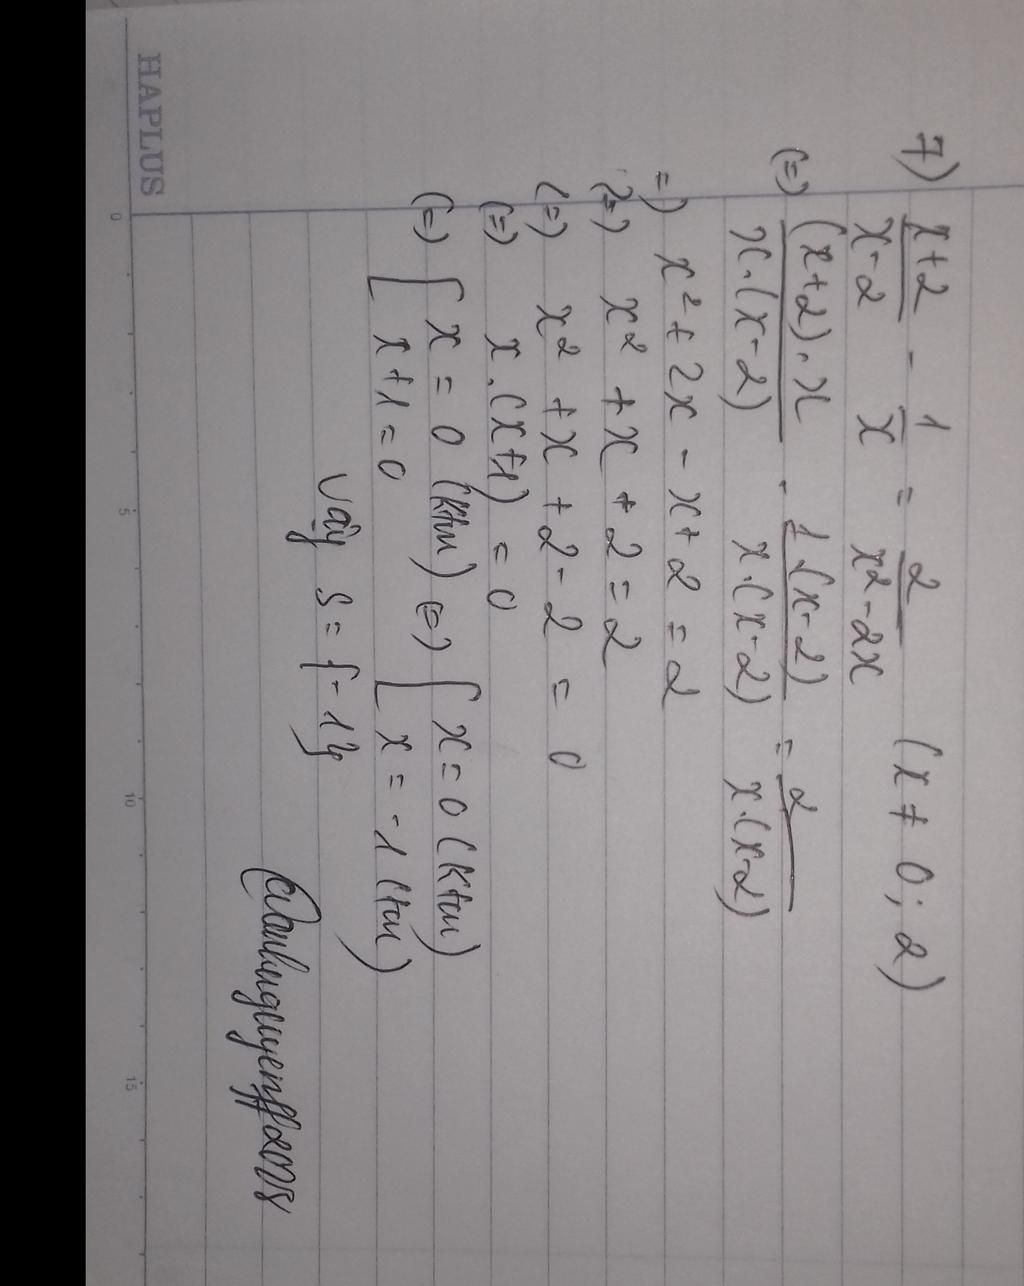 HAPLUS
0 5 10 15
7) x+2/x-2 - 1/x = 2/x²-2x (x ≠ 0; 2)
(=) (x+2).x/x.(x-2) - 1.(x-2)/x.(x-2) = 2/x.(x-2)
=) x² + 2x - x + 2 = 2
(=) x² + x + 2 = 2
(=) x² + x + 2 - 2 = 0
(=) x.(x+1) = 0
(=) [ x = 0 (ktm) (=) [ x = 0 (ktm)
x + 1 = 0 x = -1 (tm)
Vậy S = {-1}